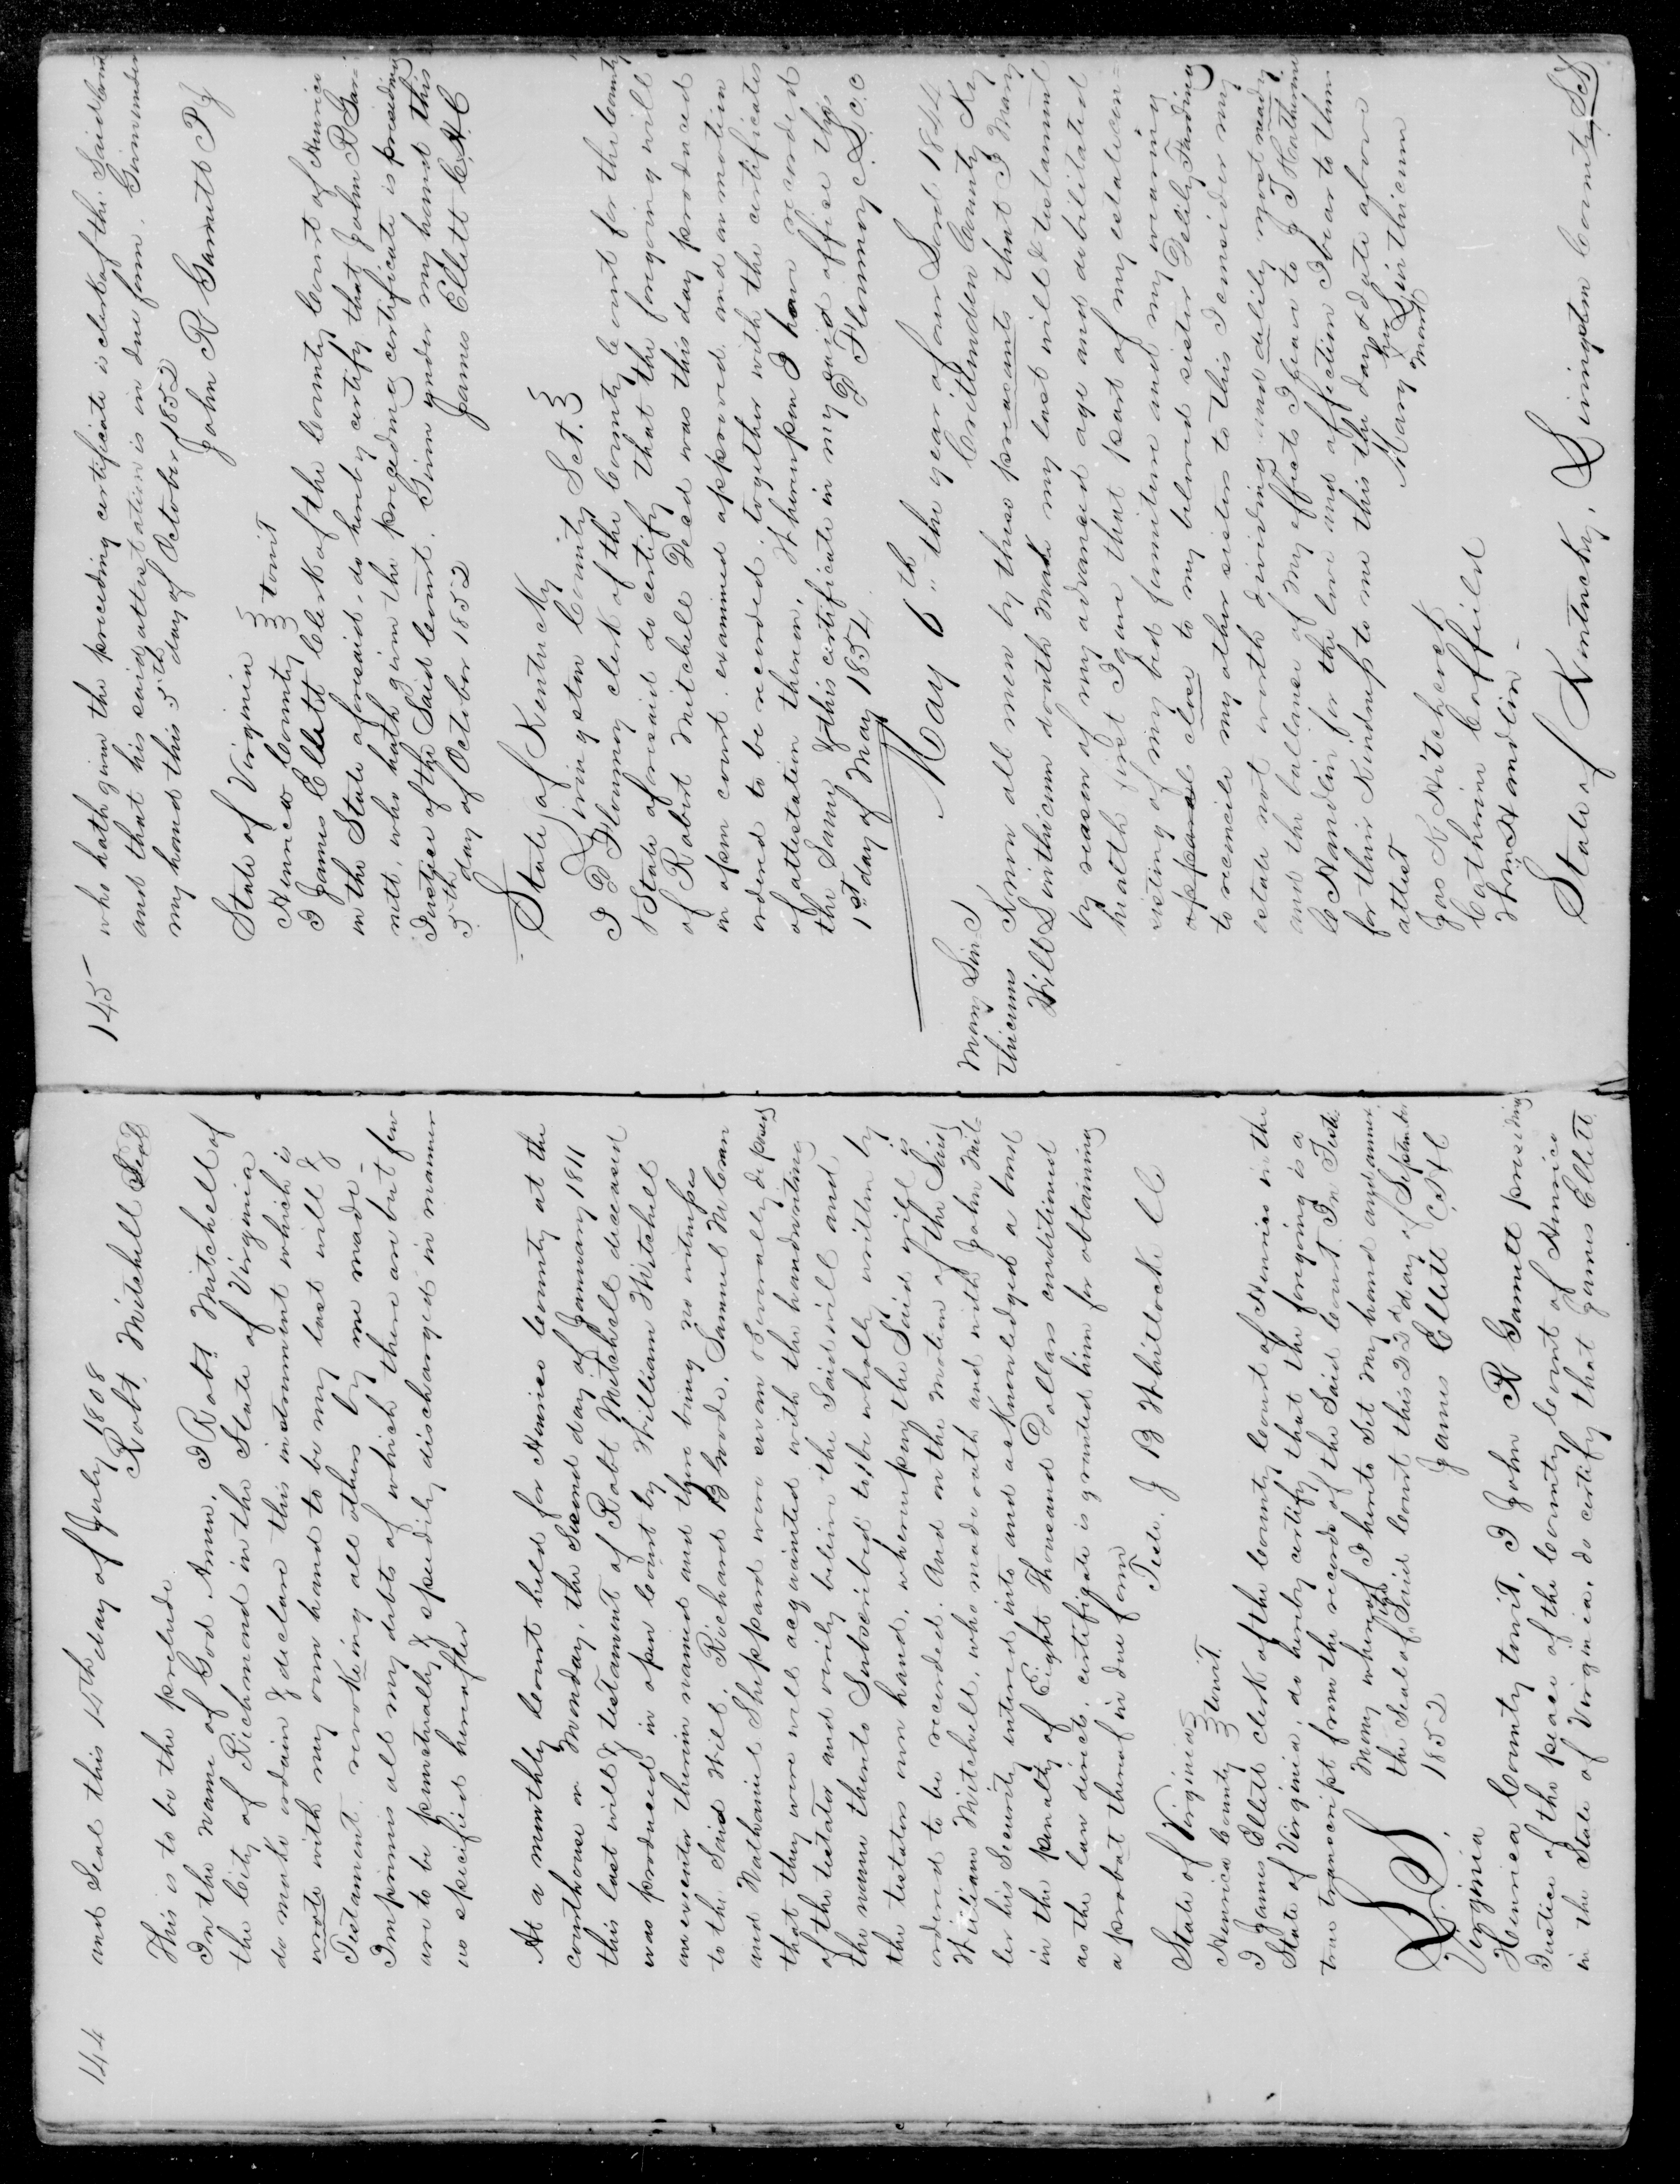 144
and Seal this 14th day of July 1808
Robt. Mitchell Seal
This is to be the prelude
In the name of God Amen, I Robt Mitchell of
the City of Richmond in the State of Virginia
do make ordain & declare this instrument which is
wrote with my own hand to be my last will &
Testament, revoking all others by me made-
Imprimis all my debts of which there are but few
are to be punctually & speedily discharged in manner
as specified hereafter
At a monthly Court held for Henrico County at the
courthouse on Monday, the Second day of January 1811
this last will & testament of Robt Mitchell deceased
was produced in open Court by William Mitchell
an executor therein named and there being no witnesses
to the Said Will. Richard Blwode, Samuel McCraw
and Nathaniel Sheppard were sworn & severally deposed
that they were well acquainted with the handwriting
of the testator and verily believe the Said will and
the name thereto Subscribed to be wholly written by
the testators own hand, whereupon the Said will is
ordered to be recorded. And on the motion of the Said
William Mitchell, who made oath and with John Mil-
ler his Security entered into and acknowledged a bond
in the penalty of Eight Thousand Dollars conditioned
as the law directs, certificate is granted him for obtaining
a probat thereof in due form
Teste. J B Whitlocke CC
State of Virginia
Henrico County towit.
I James Ellett clerk of the County Court of Henrico in the
State of Virginia, do hereby certify that the foregoing is a
true transcript from the records of the Said Court. In Testi-
mony whereof I hereto Set my hand and annex
the Seal of the Said Court this 22d day of September
1852 James Ellett C.H.C
L.S.
Virginia
Henrico County towit, I John R Garnett presiding
Justice of the peace of the County Court of Henrico
in the State of Virginia, do certify that James Ellett
145
who hath given the preceding certificate is clerk of the Said Court
and that his said attestation is in due form. Given under
my hand this 5th day of October 1852
John R Garnett P J
State of Virginia
Henrico County towit
I James Ellett Clerk of the County Court of Henrico
in the State aforesaid, do hereby certify that John R Gar-
nett, who hath given the preceding certificate is presiding
Justice of the Said Court. Given under my hand this
5th day of October 1852 James Ellett C.H.C
State of Kentucky
Livingston County Sct.
I D Flournoy clerk of the County Court for the County
& State aforesaid do certify that the foregoing will
of Robert Mitchell Decd was this day produced
in open court examined approved and on motion
ordered to be recorded, together with the certificates
of attestation thereon, Whereupon I have recorded
the Same & this certificate in my said office this
1st day of May 1854. D Flournoy c.L.c.c
May 6th " the year of our Lord 1844
Mary Lin
thicums
Will
Crittenden County Ky
Know all men by these presants that I Mary
Linthicum donth Make my last will & testament
by reason of my advanced age and debilitated
health first I gave that part of my estate con-
sisting of my bed furniture and my wearing
apparel clore to my beloved sister Delily Farding
to reconcile my other sisters to this I consider my
estate not worth dividing and delily most needy
and the ballance of my effects I gave to J T Hathume
& C Handlin for the love and affection I bear to them
for their Kindness to me this the day & date above
attest Mary her X mark Linthicum
Jas K Hitcherck
Catharine Coffield
Wm Handlin-
State of Kentucky, Livingston County Sct